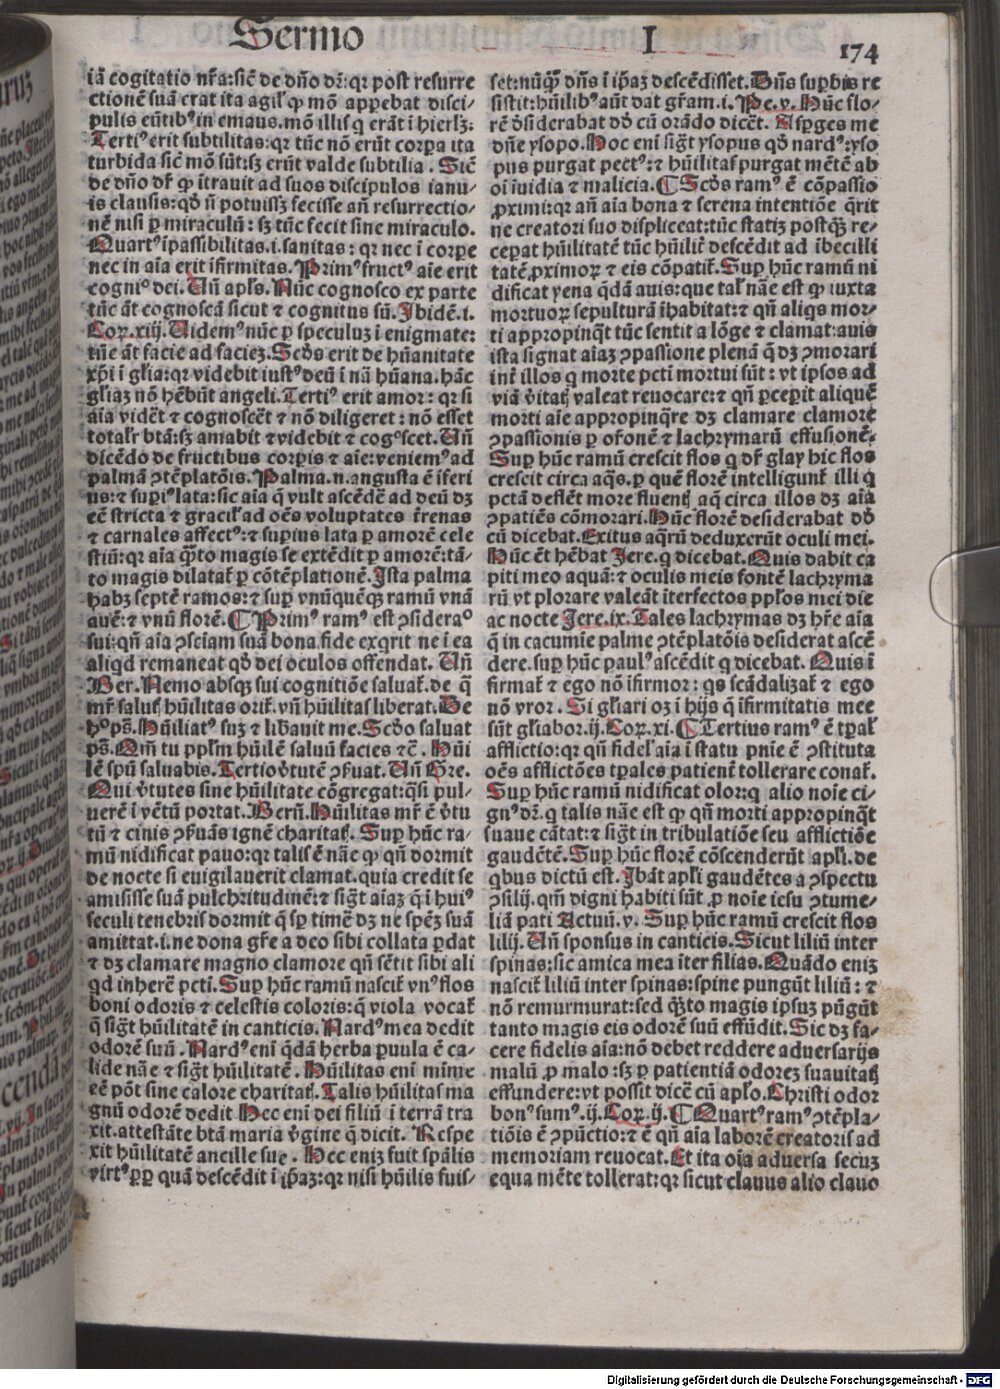 Sermo I 174
iā cogitatio nr̄a:sic̄ de dn̄o dr̄:qꝛ post resurre
ctionē suā erat ita agil' ꝙ mō apꝑebat disci/
pulis eūtibꝰ in emaus.mō illis q erāt ī hierlꝫ.
Tertiꝰ erit subtilitas:qꝛ tūc nō erūt corꝑa ita
turbida sic̄ mō sūt:sꝫ erūt valde subtilia. Sic̄
de dn̄o dr̄ ꝙ ītrauit ad suos discipulos ianu/
is clausis:qd̄ n̄ potuissꝫ fecisse an̄ resurrectio/
nē nisi ꝑ miraculū: sꝫ tūc fecit sine miraculo.
Quartꝰ īpassibilitas.i.sanitas: qꝛ nec ī corꝑe
nec in aīa erit īfirmitas. Primꝰ fructꝰ aīe erit
cognio dei. Un̄ apl̄s. Nūc cognosco ex parte
tūc āt cognoscā sicut ⁊ cognitus sū. Ibidē.i.
Coꝝ.xiij. Uidemꝰ nūc ꝑ speculuꝫ ī enigmate:
tūc āt facie ad facieꝫ. Scd̄s erit de hūanitate
xp̄i ī gl̄ia:qꝛ videbit iustꝰ deū ī nā hūana.hāc
gl̄iaꝫ nō hēbūt angeli. Tertiꝰ erit amor: qꝛ si
aīa vidēt ⁊ cognoscēt ⁊ nō diligeret: nō esset
total'r btā:sꝫ amabit ⁊ videbit ⁊ cogoscet. Un̄
dicēdo de fructibus corꝑis ⁊ aīe:veniemꝰ ad
palmā ɔtēplatōis. Palma.n.angusta ē īferi
us:⁊ suꝑiꝰ lata:sic aīa q̄ vult ascēdē ad deū dꝫ
eē stricta ⁊ gracil' ad oēs voluptates t̄renas
⁊ carnales affectꝰ:⁊ suꝑius lata ꝑ amorē cele
stiū:qꝛ aīa q̄to magis se extēdit ꝑ amorē:tā/
to magis dilatat̄ ꝑ cōtēplationē. Ista palma
habꝫ septē ramos:⁊ suꝑ vnūquēqꝫ ramū vnā
auē:⁊ vnū florē. ¶ Primꝰ ramꝰ est ɔsiderao
sui:qn̄ aīa ɔsciam suā bona fide exq̄rit ne ī ea
aliqd remaneat qd̄ dei oculos offendat. Un̄
Ber. Nemo absqꝫ sui cognitiōe saluat̄.de q̄
mr̄ salus hūilitas orit̄.vn̄ hūilitas liberat. De
hoc ps̄. Hūiliatꝰ suꝫ ⁊ libauit me. Scd̄o saluat
ps̄. Qm̄ tu pplm̄ hūilē saluū facies ⁊c̄. Hūi
lē spū saluabis. Tertio v̓tutē ɔẜuat. Un̄ Gre.
Qui v̓tutes sine hūilitate cōgregat:q̄si pul/
uerē ī vētū portat. Berñ. Hūilitas mr̄ ē v̓tu
tū ⁊ cinis ɔẜuās ignē charitatꝭ. Suꝑ hūc ra/
mū nidificat pauo:qꝛ talis ē nāe ꝙ qn̄ dormit
de nocte si euigilauerit clamat.quia credit se
amisisse suā pulchritudinē:⁊ sigt̄ aīaꝫ q̄ ī huiꝰ
seculi tenebris dormit q̄ sꝑ timē dꝫ ne spēꝫ suā
amittat.i.ne dona gr̄e a deo sibi collata ꝑdat
⁊ dꝫ clamare magno clamore qn̄ sētit sibi ali
qd inherē pcti. Suꝑ hūc ramū nascit̄ vnꝰ flos
boni odoris ⁊ celestis coloris:q̄ viola vocat̄
q̄ sigt̄ hūilitatē in canticis. Nardꝰ mea dedit
odorē suū. Nardꝰ eni q̄dā herba ꝑuula ē ca/
lide nāe ⁊ sigt̄ hūilitatē. Hūilitas eni mīme
eē pōt sine calore charitatꝭ. Talis hūilitas ma
gnū odorē dedit Hec eni dei filiū ī terrā tra
xit.attestāte btā maria v̓gine q̄ dicit. Respe
xit hūilitatē ancille sue. Hec eniꝫ fuit spālis
virtꝰ ꝓpꝑ quā descēdit ī ip̄aꝫ:qꝛ nisi hūilis fuis/
set:nūq̄ꝫ dn̄s ī ip̄aꝫ descēdisset. Dn̄s suꝑbis re
sistit:hūilibꝰ aūt dat gr̄am.i. Pe.v. Hūc flo/
rē d̓siderabat dd̄ cū orādo dicēt. Asꝑges me
dn̄e ysopo. Hoc eni sigt̄ ysopus qd̄ nardꝰ:yso
pus purgat pectꝰ:⁊ hūilitas purgat mētē ab
oī iuidia ⁊ malicia. ¶ Scd̄s ramꝰ ē cōpassio
ꝓximi:qꝛ an̄ aīa bona ⁊ serena intentiōe q̄rit
ne creatori suo displiceat:tūc statiꝫ postq̄ꝫ re/
ceꝑat hūilitatē tūc hūilit̄ descēdit ad ībecilli
tatē ꝓximoꝝ ⁊ eis cōpatit̄. Suꝑ hūc ramū ni
dificat yena q̄dā auis:que tal' nāe est ꝙ iuxta
mortuoꝝ sepulturā īhabitat:⁊ qn̄ aliqs mor/
ti appropinqt tūc sentit a lōge ⁊ clamat:auis
ista signat aīaꝫ ɔpassione plenā q̄ dꝫ ɔmorari
int̄ illos q morte pcti mortui sūt: vt ipsos ad
viā v̓itatꝭ valeat reuocare:⁊ qn̄ ꝑceꝑit aliquē
morti aīe appropinq̄re dꝫ clamare clamore
ɔpassionis ꝑ or̄onē ⁊ lachrymarū effusionē.
Suꝑ hūc ramū crescit flos q dr̄ glay hic flos
crescit circa aq̄s.ꝑ quē florē intelligunt̄ illi q
pctā deflēt more fluentꝭ aq̄ circa illos dꝫ aīa
ɔpatiēs cōmorari. Hūc florē desiderabat dd̄
cū dicebat. Exitus aq̄rū deduxerūt oculi mei.
Hūc ēt hēbat Jere.q dicebat. Quis dabit ca
piti meo aquā:⁊ oculis meis fontē lachryma
rū vt plorare valeāt īterfectos ppl̄os mei die
ac nocte Jere.ix. Tales lachrymas dꝫ hr̄e aīa
q̄ in cacumīe palme ɔtēplatōis desiderat ascē
dere.suꝑ hūc paulꝰ ascēdit q dicebat. Quis ī
firmat̄ ⁊ ego nō īfirmor: qs scādalizat̄ ⁊ ego
nō vror. Si gl̄iari oꝫ ī hijs q̄ īfirmitatis mee
sūt gl̄iabor.ij. Coꝝ.xi. ¶ Tertius ramꝰ ē tꝑal'
afflictio:qꝛ qn̄ fidel' aīa ī statu pn̄ie ē ɔstituta
oēs afflictōes tꝑales patient̄ tollerare conat̄.
Suꝑ hūc ramū nidificat olor:q alio noīe ci/
gnꝰ dr̄.q talis nāe est ꝙ qn̄ morti appropinqt
suaue cātat:⁊ sigt̄ in tribulatiōe seu afflictiōe
gaudētē. Suꝑ hūc florē cōscenderūt apl̄i.de
qbus dictū est. Ibāt apl̄i gaudētes a ɔspectu
ɔsilij.qm̄ digni habiti sūt ꝓ noīe iesu ɔtume/
liā pati Actuū.v. Suꝑ hūc ramū crescit flos
lilij. Un̄ sponsus in canticis. Sicut liliū inter
spinas:sic amica mea īter filias. Quādo eniꝫ
nascit̄ liliū inter spinas:spine pungūt liliū: ⁊
nō remurmurat:sed q̄ꝫto magis ipsuꝫ pūgūt
tanto magis eis odorē suū effūdit. Sic dꝫ fa/
cere fidelis aīa:nō debet reddere aduersarijs
malū ꝓ malo:sꝫ ꝑ patientiā odoreꝫ suauitatꝭ
effundere:vt possit dicē cū apl̄o. Christi odor
bonꝰ sumꝰ.ij. Coꝝ.ij. ¶ Quartꝰ ramꝰ ɔtēpla/
tiōis ē ɔpūctio:⁊ ē qn̄ aīa laborē creatoris ad
memoriam reuocat. Et ita oīa aduersa secuꝫ
equa mēte tollerat:qꝛ sicut clauus alio clauo
Digitalisierung gefördert durch die Deutsche Forschungsgemeinschaft - DFG